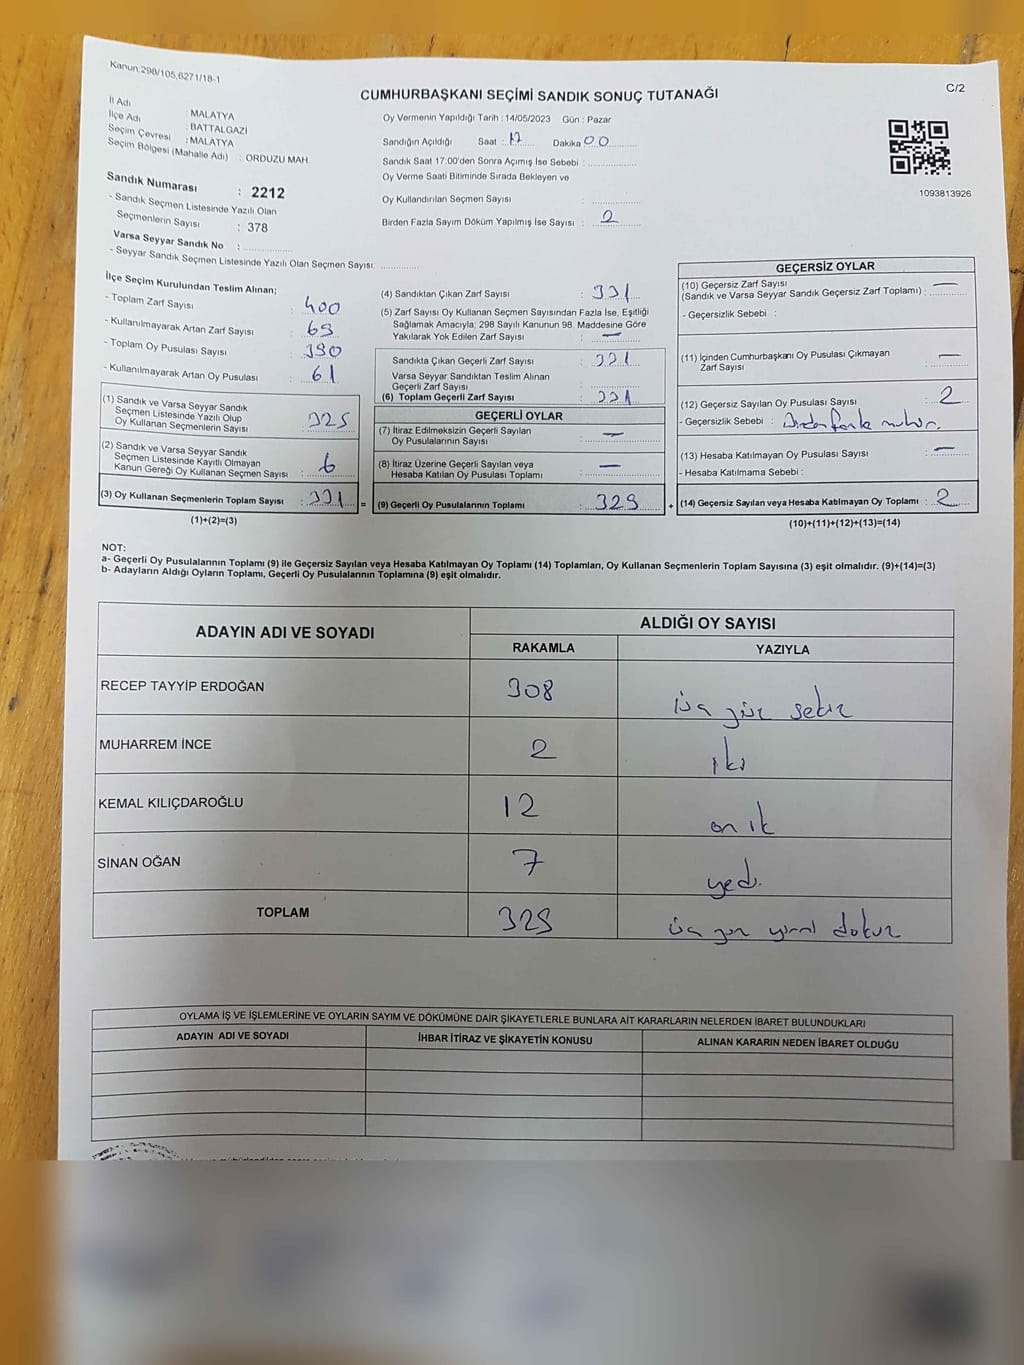 Kanun,298/105,6271/18-1
C/2
CUMHURBAŞKANI SEÇİMİ SANDIK SONUÇ TUTANAĞI
İl Adı : MALATYA
İlçe Adı : BATTALGAZİ
Seçim Çevresi : MALATYA
Seçim Bölgesi (Mahalle Adı) : ORDUZU MAH.
Sandık Numarası : 2212
- Sandık Seçmen Listesinde Yazılı Olan
Seçmenlerin Sayısı : 378
Varsa Seyyar Sandık No :
- Seyyar Sandık Seçmen Listesinde Yazılı Olan Seçmen Sayısı:
Oy Vermenin Yapıldığı Tarih : 14/05/2023 Gün : Pazar
Sandığın Açıldığı Saat : 17 Dakika 00
Sandık Saat 17:00'den Sonra Açımış İse Sebebi :
Oy Verme Saati Bitiminde Sırada Bekleyen ve
Oy Kullandırılan Seçmen Sayısı :
Birden Fazla Sayım Döküm Yapılmış İse Sayısı : 2
1093813926
İlçe Seçim Kurulundan Teslim Alınan;
- Toplam Zarf Sayısı : 400
- Kullanılmayarak Artan Zarf Sayısı : 69
- Toplam Oy Pusulası Sayısı : 390
- Kullanılmayarak Artan Oy Pusulası : 61
(1) Sandık ve Varsa Seyyar Sandık
Seçmen Listesinde Yazılı Olup
Oy Kullanan Seçmenlerin Sayısı : 325
(2) Sandık ve Varsa Seyyar Sandık
Seçmen Listesinde Kayıtlı Olmayan
Kanun Gereği Oy Kullanan Seçmen Sayısı : 6
(3) Oy Kullanan Seçmenlerin Toplam Sayısı : 331 =
(1)+(2)=(3)
(4) Sandıktan Çıkan Zarf Sayısı : 331
(5) Zarf Sayısı Oy Kullanan Seçmen Sayısından Fazla İse, Eşitliği
Sağlamak Amacıyla, 298 Sayılı Kanunun 98. Maddesine Göre
Yakılarak Yok Edilen Zarf Sayısı : —
Sandıkta Çıkan Geçerli Zarf Sayısı : 331
Varsa Seyyar Sandıktan Teslim Alınan
Geçerli Zarf Sayısı :
(6) Toplam Geçerli Zarf Sayısı : 331
GEÇERLİ OYLAR
(7) İtiraz Edilmeksizin Geçerli Sayılan
Oy Pusulalarının Sayısı : —
(8) İtiraz Üzerine Geçerli Sayılan veya
Hesaba Katılan Oy Pusulası Toplamı : —
(9) Geçerli Oy Pusulalarının Toplamı : 329 +
GEÇERSİZ OYLAR
(10) Geçersiz Zarf Sayısı
(Sandık ve Varsa Seyyar Sandık Geçersiz Zarf Toplamı) : —
- Geçersizlik Sebebi :
(11) İçinden Cumhurbaşkanı Oy Pusulası Çıkmayan
Zarf Sayısı : —
(12) Geçersiz Sayılan Oy Pusulası Sayısı : 2
- Geçersizlik Sebebi : Birden fazla mühür.
(13) Hesaba Katılmayan Oy Pusulası Sayısı : —
- Hesaba Katılmama Sebebi :
(14) Geçersiz Sayılan veya Hesaba Katılmayan Oy Toplamı : 2
(10)+(11)+(12)+(13)=(14)
NOT:
a- Geçerli Oy Pusulalarının Toplamı (9) ile Geçersiz Sayılan veya Hesaba Katılmayan Oy Toplamı (14) Toplamları, Oy Kullanan Seçmenlerin Toplam Sayısına (3) eşit olmalıdır. (9)+(14)=(3)
b- Adayların Aldığı Oyların Toplamı, Geçerli Oy Pusulalarının Toplamına (9) eşit olmalıdır.
ADAYIN ADI VE SOYADI ALDIĞI OY SAYISI
RAKAMLA YAZIYLA
RECEP TAYYİP ERDOĞAN 308 üç yüz sekiz
MUHARREM İNCE 2 iki
KEMAL KILIÇDAROĞLU 12 on ik
SİNAN OĞAN 7 yedi
TOPLAM 329 üç yüz yirmi dokuz
OYLAMA İŞ VE İŞLEMLERİNE VE OYLARIN SAYIM VE DÖKÜMÜNE DAİR ŞİKAYETLERLE BUNLARA AİT KARARLARIN NELERDEN İBARET BULUNDUKLARI
ADAYIN ADI VE SOYADI İHBAR İTİRAZ VE ŞİKAYETİN KONUSU ALINAN KARARIN NEDEN İBARET OLDUĞU